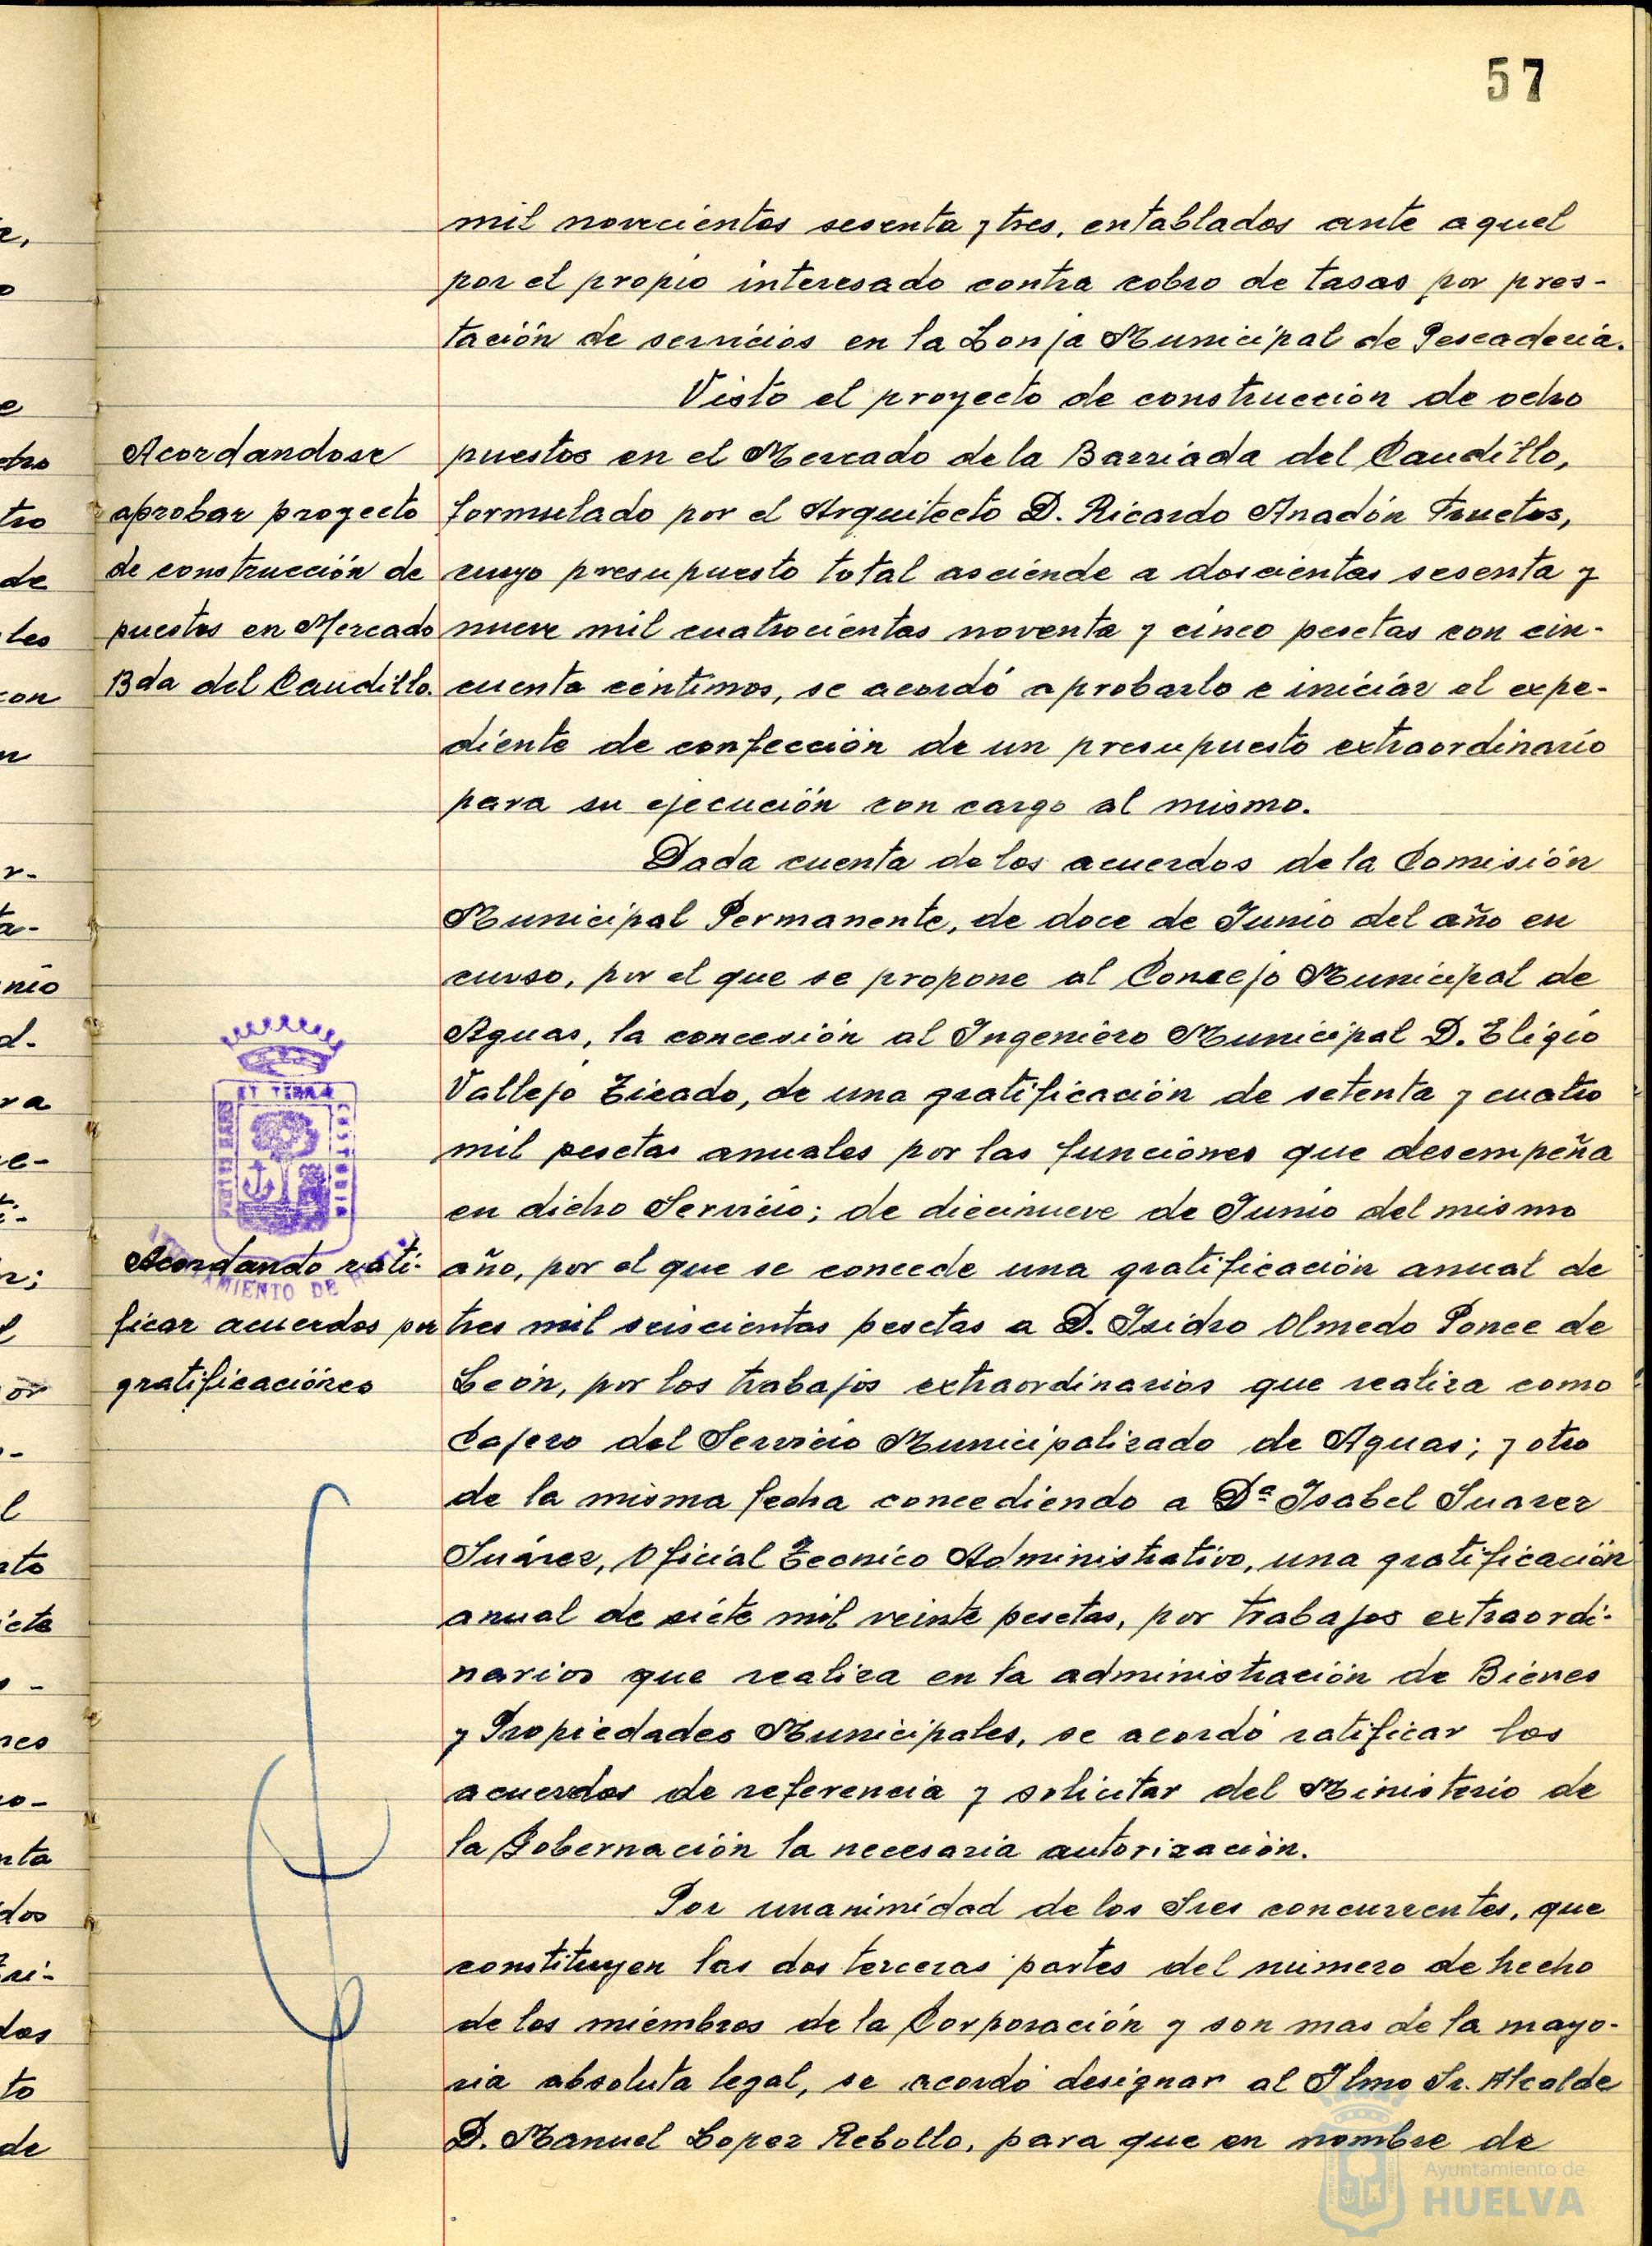 57
mil novecientos sesenta y tres, entablados ante aquel
por el propio interesado contra cobro de tasas por pres-
tación de servicios en la Lonja Municipal de Pescaderia.
Visto el proyecto de construcción de ocho
Acordandose
aprobar proyecto
de construcción de
puestos en Mercado
Bda del Caudillo.
puestos en el Mercado de la Barriada del Caudillo,
formulado por el Arquitecto D. Ricardo Anadón Frutos,
cuyo presupuesto total asciende a doscientas sesenta y
nueve mil cuatrocientas noventa y cinco pesetas con cin-
cuenta céntimos, se acordó aprobarlo e iniciar el expe-
diente de confección de un presupuesto extraordinario
para su ejecución con cargo al mismo.
Dada cuenta de los acuerdos de la Comisión
Municipal Permanente, de doce de Junio del año en
curso, por el que se propone al Concejo Municipal de
Aguas, la concesión al Ingeniero Municipal D. Eligio
Vallejo Ticado, de una gratificación de setenta y cuatro
mil pesetas anuales por las funciones que desempeña
en dicho Servicio; de diecinueve de Junio del mismo
ET TERRA
CUSTODIA
MIENTO DE
Acordando rati-
ficar acuerdos por
gratificaciones
año, por el que se concede una gratificación anual de
tres mil seiscientas pesetas a D. Isidro Olmedo Ponce de
León, por los trabajos extraordinarios que realiza como
Cajero del Servicio Municipalizado de Aguas; y otro
de la misma fecha concediendo a Dª Isabel Suarez
Suárez, Oficial Tecnico Administrativo, una gratificación
anual de siete mil veinte pesetas, por trabajos extraordi-
narios que realiza en la administración de Bienes
y Propiedades Municipales, se acordó ratificar los
acuerdos de referencia y solicitar del Ministerio de
la Gobernación la necesaria autorización.
Por unanimidad de los Sres concurrentes, que
constituyen las dos terceras partes del número de hecho
de los miembros de la Corporación y son mas de la mayo-
ria absoluta legal, se acordó designar al Ilmo Sr. Alcalde
D. Manuel Lopez Rebollo, para que en nombre de
Ayuntamiento de
HUELVA